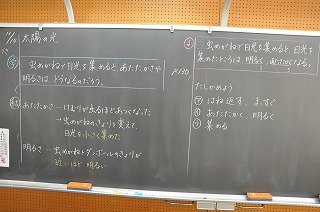 太陽の光
虫めがねで日光を集めると、あたたかさや
明るさは、どうなるのだろう。
あたたかさ → けむりが出るほどあつくなった
→ 虫めがねのきょりを変えて、
日光を小さく集めた
明るさ → 虫めがねとダンボールのきょりが
近いほど 明るい
ま 虫めがねで日光を集めると、日光を
集めたところは、明るく、あたたかくなる。
P130
たしかめよう
㋐ はね返す、まっすぐ
㋑ あたたかく、明るく
㋒ 集める